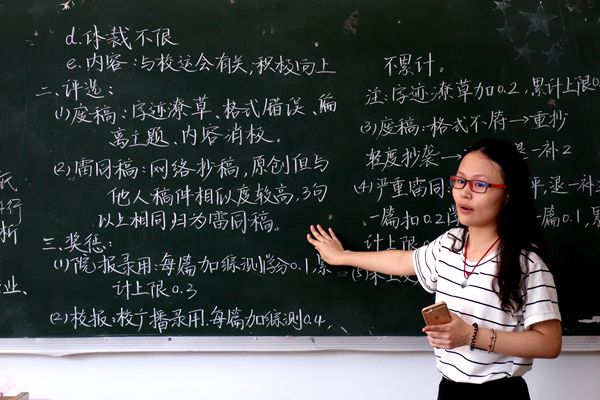 d.体裁不限
e.内容:与校运会有关,积极向上
二、评选:
(1)废稿:字迹潦草、格式错误、偏
离主题、内容消极。
(2)雷同稿:网络抄稿,原创但与
他人稿件相似度较高,3句
以上相同归为雷同稿。
三、奖惩:
(1)院报录用:每篇加综测学分0.1,累
计上限0.3
(2)校报:校广播录用.每篇加综测0.4,
不累计。
注:字迹潦草加0.2,累计上限0
(3)废稿:格式不符→重抄
轻度抄袭→ 退一补2
(4)严重雷同 平,退一补
一篇扣0.2 0.1,累
计上限